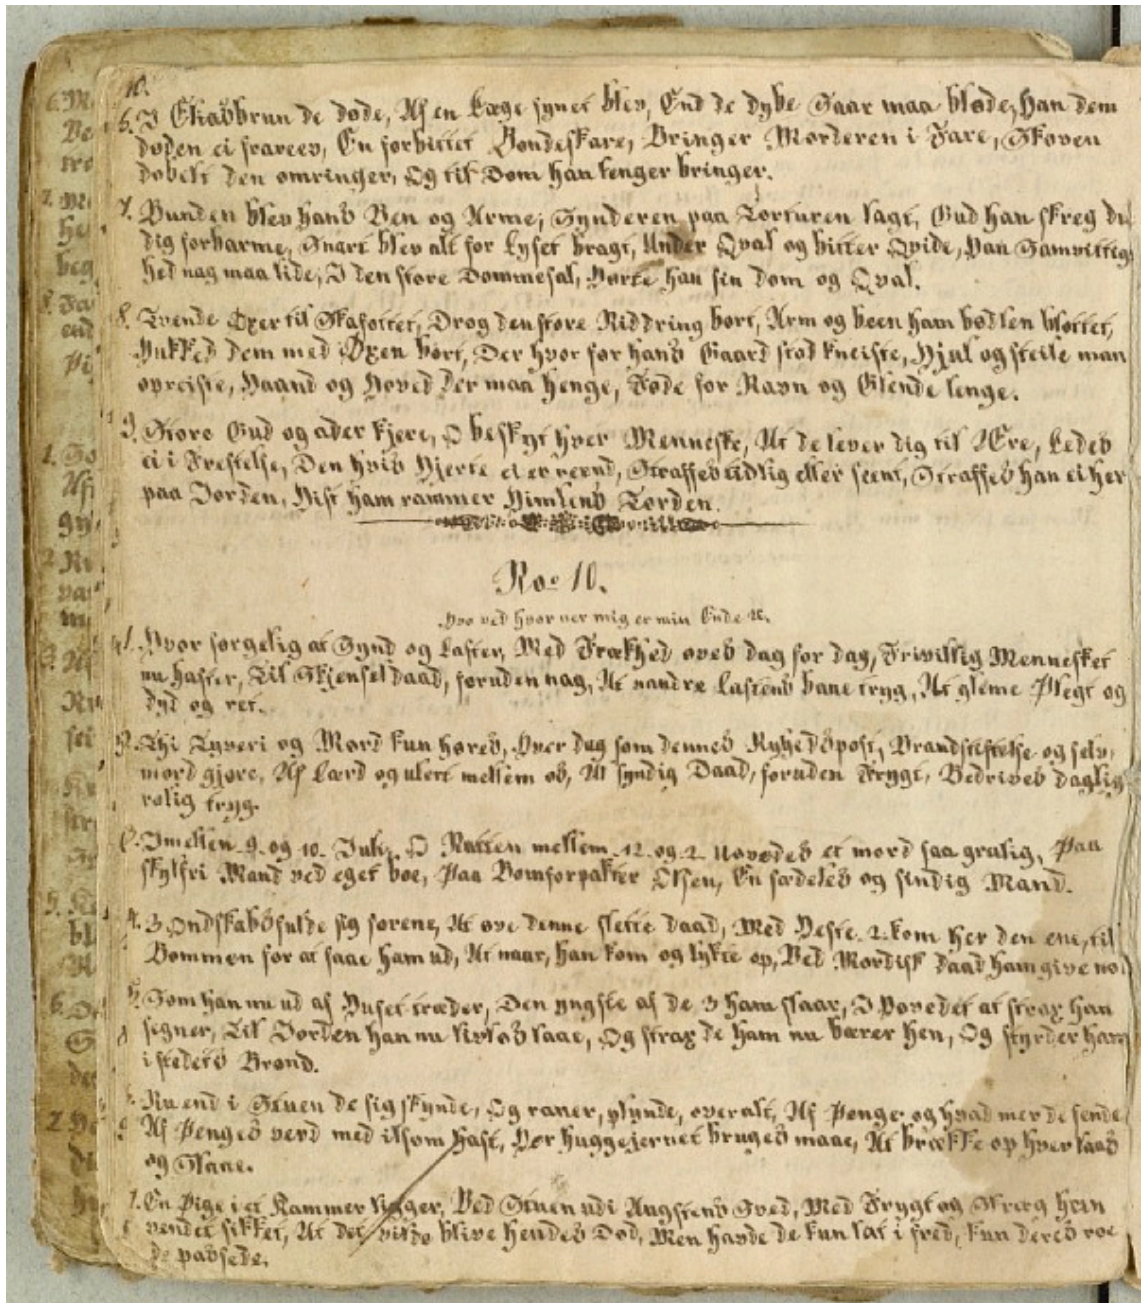 10.
6. I Ekaabrun de døde, Af en Læge synet blev, End de dybe Saar maa bløde, Han dem
døden ei frarev, En forbittet Bondeskare, Bringer Morderen i Fare, Skoven
dobelt den omringer, Og til Dom han lenger bringer.
7. Bunden blev hans Ben og Arme, Synderen paa Torturen lagt, Gud han skreg du
dig forbarme, Snart blev alt for Lyset bragt, Under Qval og bitter Qvide, Han Samvittig
hed nag maa lide, I den store Dommesal, Hørte han sin dom og Qval.
8. Tvende Oxer til Skafottet, Drog den store Niddring bort, Arm og been ham bødlen blottet,
Hukked dem med Öxen bort, Der hvor for hans Gaard stod kneiste, Hjul og steile man
opreiste, Haand og Hoved der maa henge, Føde for Ravn og Glende lenge.
9. Store Gud og ader kjere, O beskyt hver Menneske, At de lever dig til Ære, Ledes
ei i Frestelse, Den hvis Hjerte ei er reend, Straffes tidlig eller seent, Straffes han ei her
paa Jorden, Hist ham rammer Himlens Torden.
No 10.
Hvo ved hvor ner mig er min Ende &c.
1. Hvor sørgelig at Synd og Laster, Med Frækhed øves dag for dag, Frivillig Mennesket
nu haster, Til Skjensel daad, foruden nag, At vandre Lastens bane tryg, At gleme Plegt og
dyd og ret.
2. Thi Tyveri og Mord kun høres, Hver dag som dennes Nyhedspost, Brandstiftelse og selv
mord gjøre, Af Lærd og ulert mellem os, At syndig Daad, foruden Frygt, Bedrives daglig
rolig tryg.
Imellen 9. og 10. Juli, O Natten mellem 12. og 2. Uøvedes et mord saa grulig, Paa
skylfri Mand ved eget boe, Paa Bomforpakter Olsen, En sædeles og sindig Mand.
4. 3 Ondskabsfulde sig forene, At øve denne slette daad, Med Heste 2. kom her den ene, til
Bommen for at faae ham ud, At naar, han kom og lykte op, Ved Mordisk daad ham give
5. Som han nu ud af Huset træder, Den yngste af de 3 ham slaar, I Hovedet at strax han
segner, Til Jorden han nu livløs laae, Og strax de ham nu bærer hen, Og styrder ham
i stedets Brønd.
Nu end i Stuen de sig skynde, Og raner, plynde, overalt, Af Penge og hvad mer de fende
Af Penges verd med ilsom Hast, Her huggejernet bruges maae, At brække op hver laas
og Slaae.
7. En Pige i et Kammer ligger, Ved Stuen udi Angstens Sved, Med Frygt og Skræg hun
vendet sikket, At det vilde blive hendes Død, Men havde de kun lat i fred, kun deres roe
de passede.